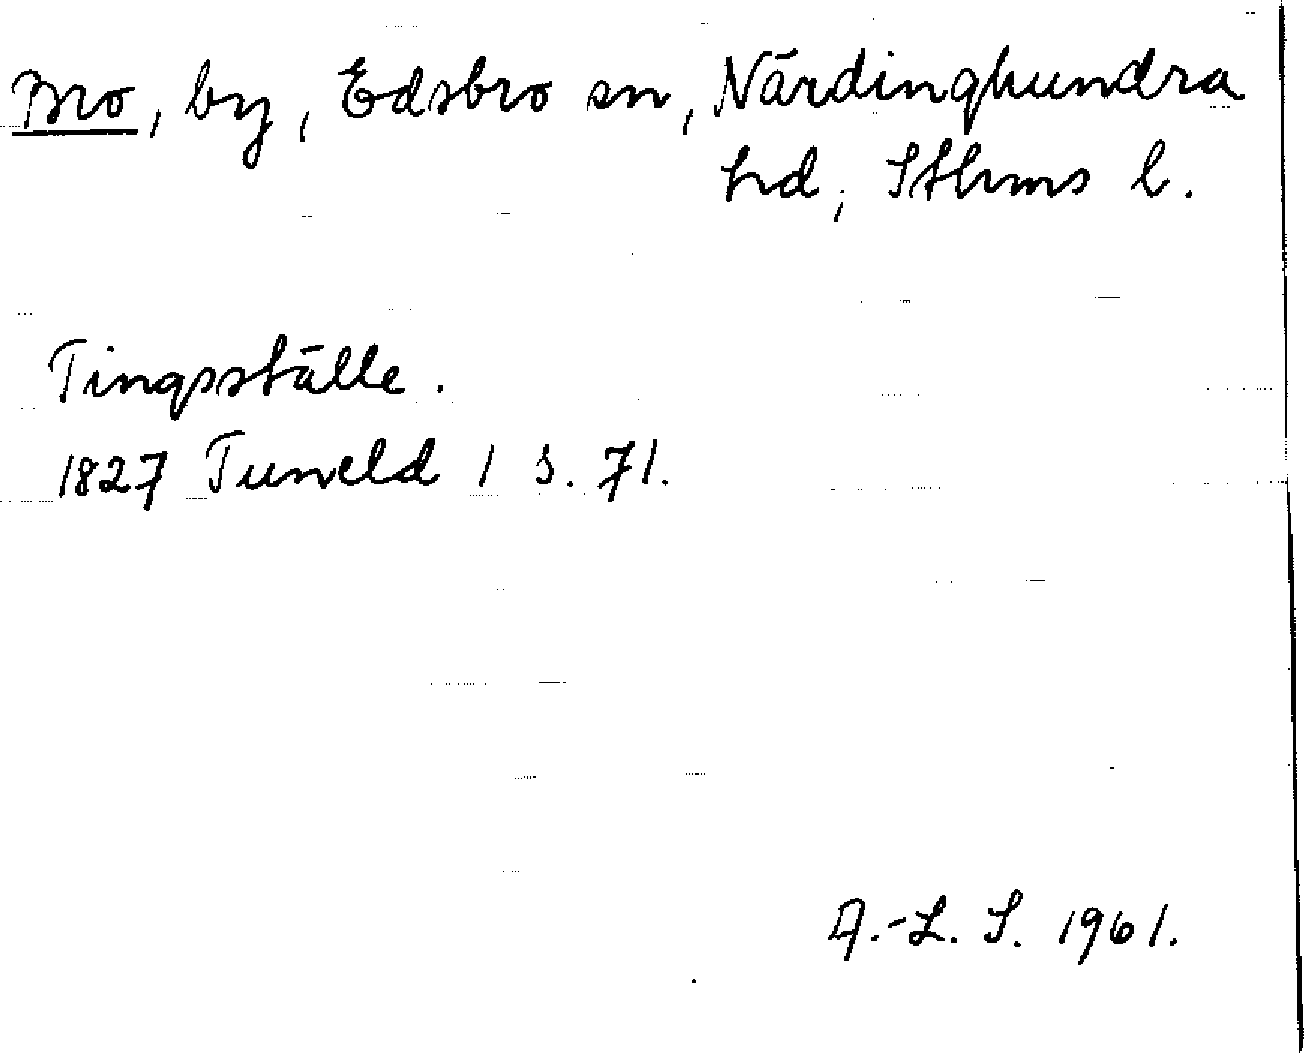 Bro, by, Edsbro sn, Närdinghundra
hd, Sthms l.
Tingsställe.
1827 Tuneld 1 s. 71.
A.-L. S. 1961.